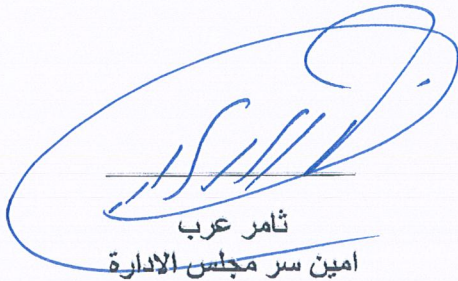 ثامر عرب
امين سر مجلس الادارة